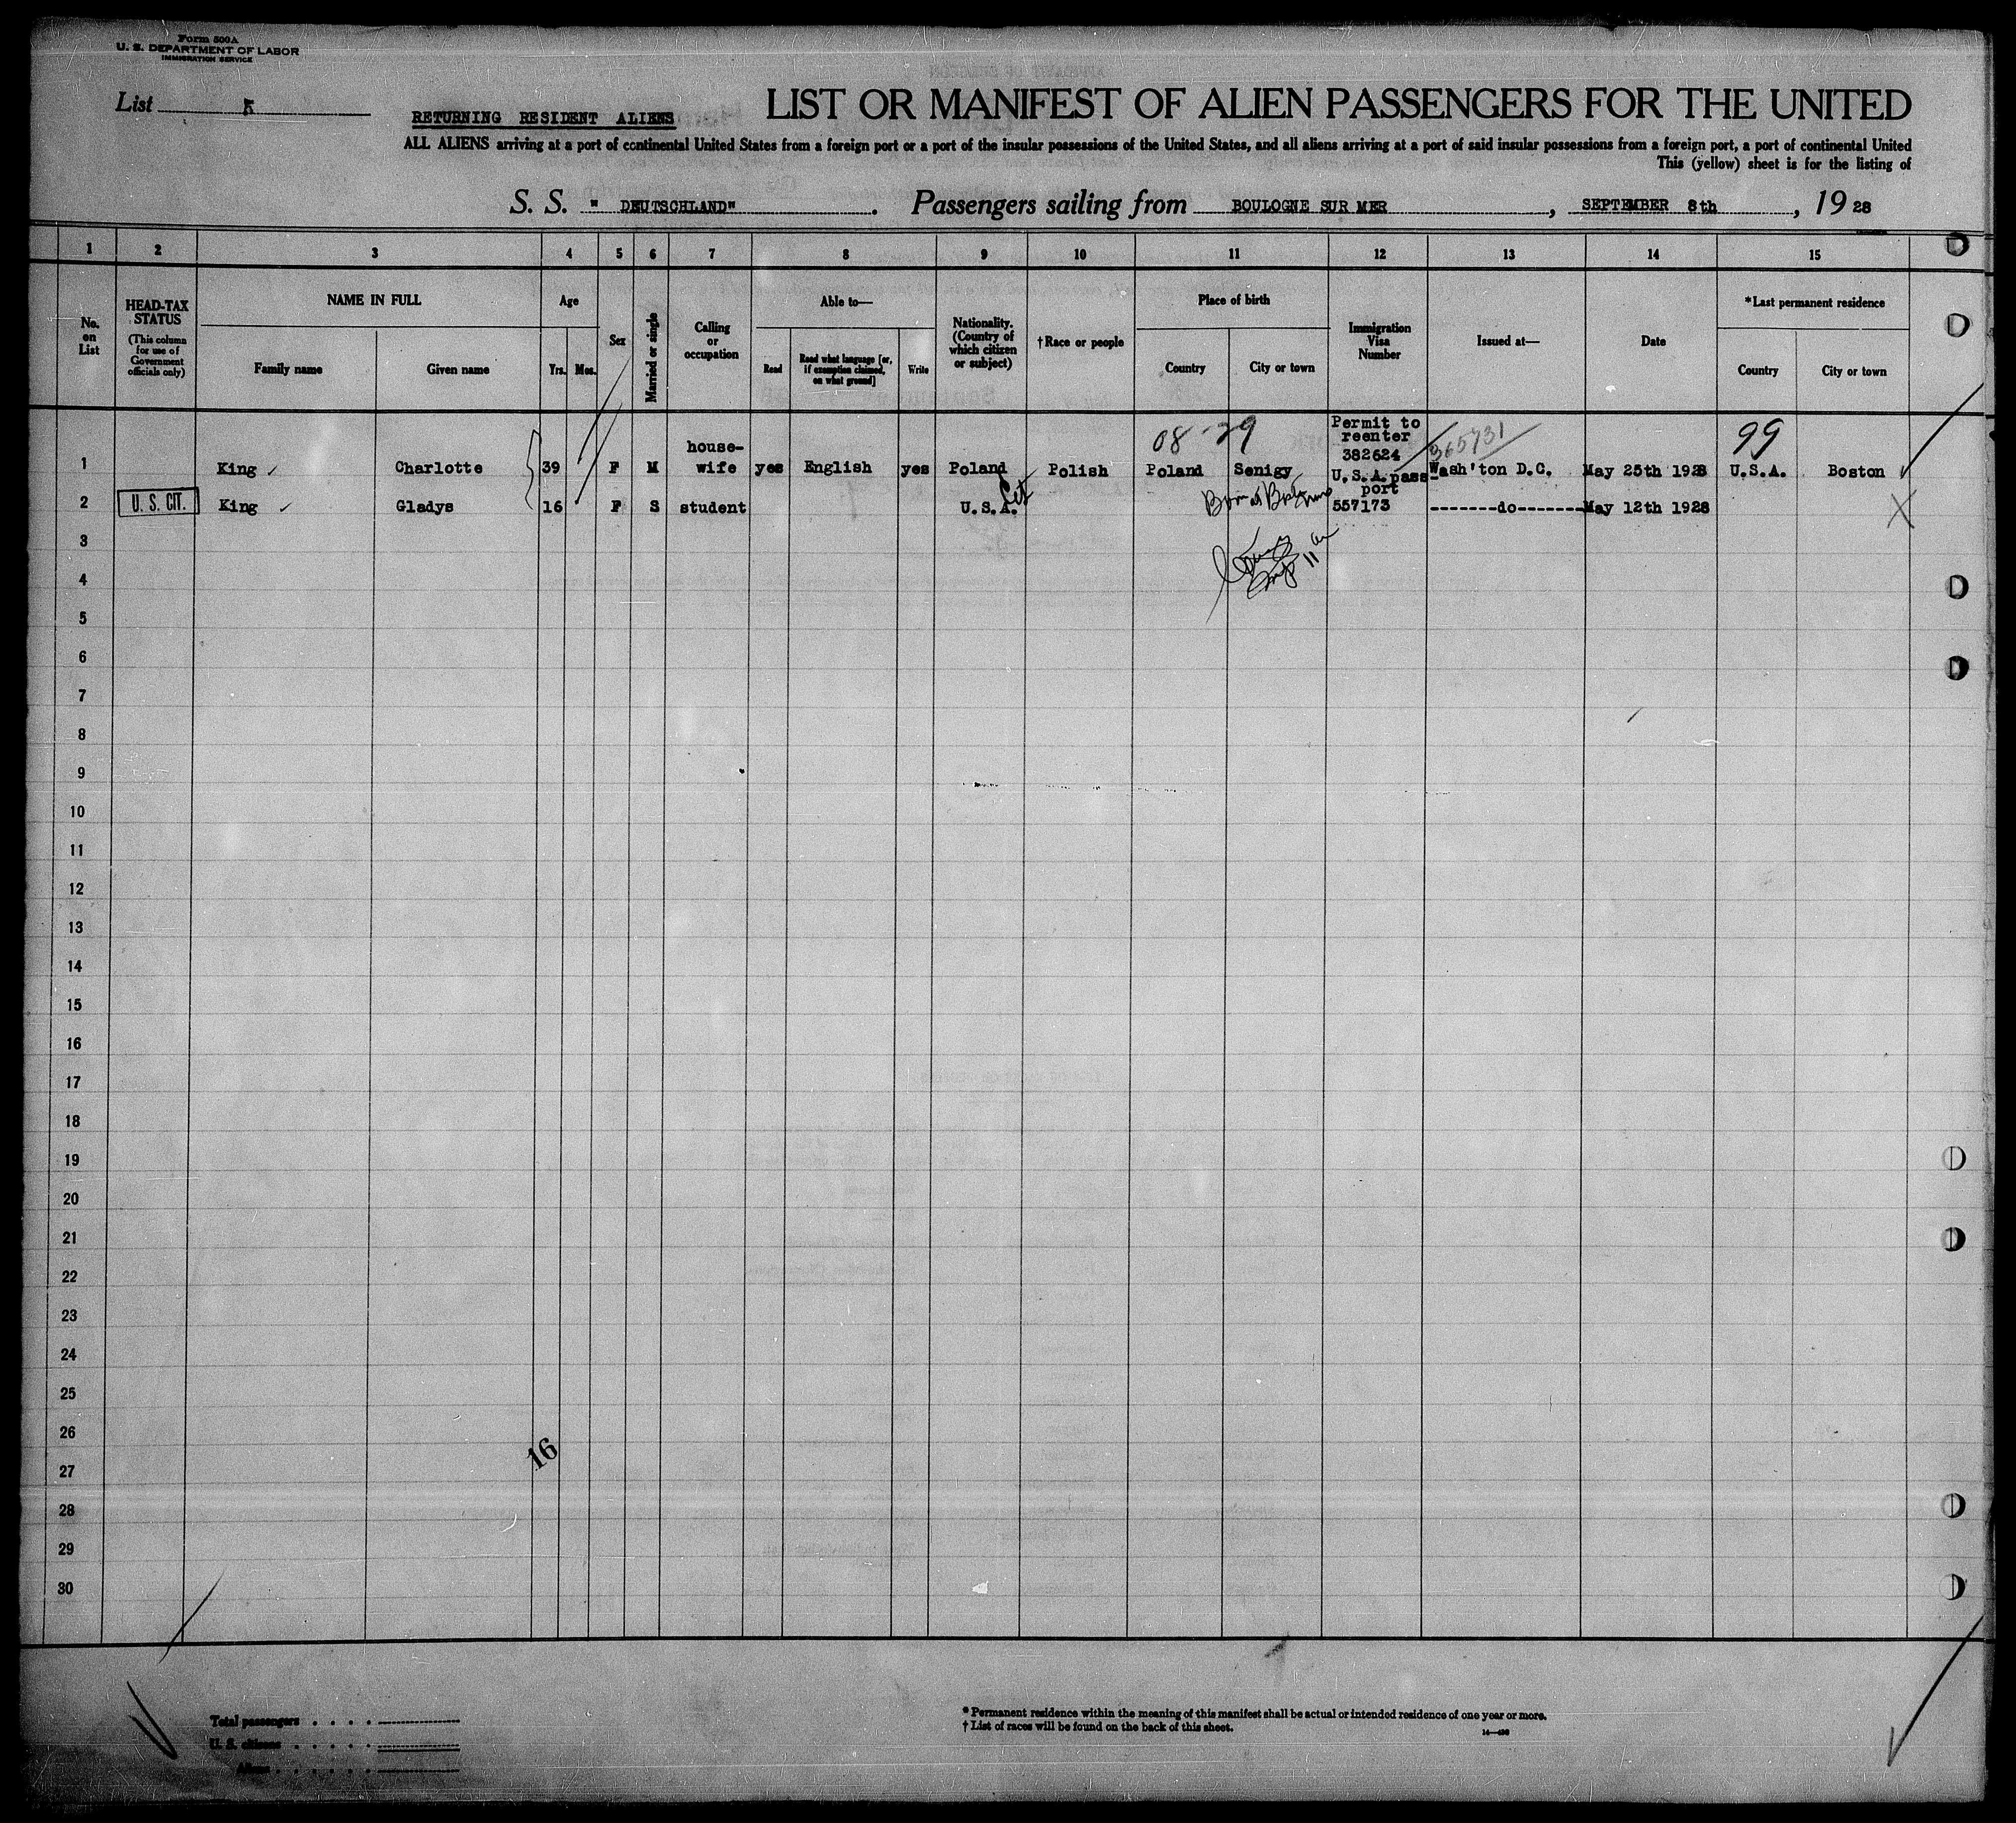 Form 500A
U. S. DEPARTMENT OF LABOR
IMMIGRATION SERVICE
List 5
RETURNING RESIDENT ALIENS
LIST OR MANIFEST OF ALIEN PASSENGERS FOR THE UNITED
ALL ALIENS arriving at a port of continental United States from a foreign port or a port of the insular possessions of the United States, and all aliens arriving at a port of said insular possessions from a foreign port, a port of continental United
This (yellow) sheet is for the listing of
S. S. " DEUTSCHLAND" . Passengers sailing from BOULOGNE SUR MER , SEPTEMBER 8th , 19 28
1 2 3 4 5 6 7 8 9 10 11 12 13 14 15
No. on List
HEAD-TAX STATUS
(This column for use of Government officials only)
NAME IN FULL
Family name
Given name
Age
Yrs. Mos.
Sex
Married or single
Calling or occupation
Able to—
Read
Read what language [or, if exemption claimed, on what ground]
Write
Nationality. (Country of which citizen or subject)
†Race or people
Place of birth
Country
City or town
Immigration Visa Number
Issued at—
Date
*Last permanent residence
Country
City or town
08-29
Permit to
reenter
365731
99
1 King Charlotte 39 F M house-wife yes English yes Poland Polish Poland Senigy 382624 Wash'ton D.C. May 25th 1928 U.S.A. Boston
U.S.A. pass-
port
2 U. S. CIT. King Gladys 16 F S student U.S.A. Cit Born at Boston 557173 -------do------- May 12th 1928
3
4
5
6
7
8
9
10
11
12
13
14
15
16
17
18
19
20
21
22
23
24
25
26
16
27
28
29
30
Total passengers . . . .
U. S. citizens . . . . .
Aliens . . . . . .
* Permanent residence within the meaning of this manifest shall be actual or intended residence of one year or more.
† List of races will be found on the back of this sheet.